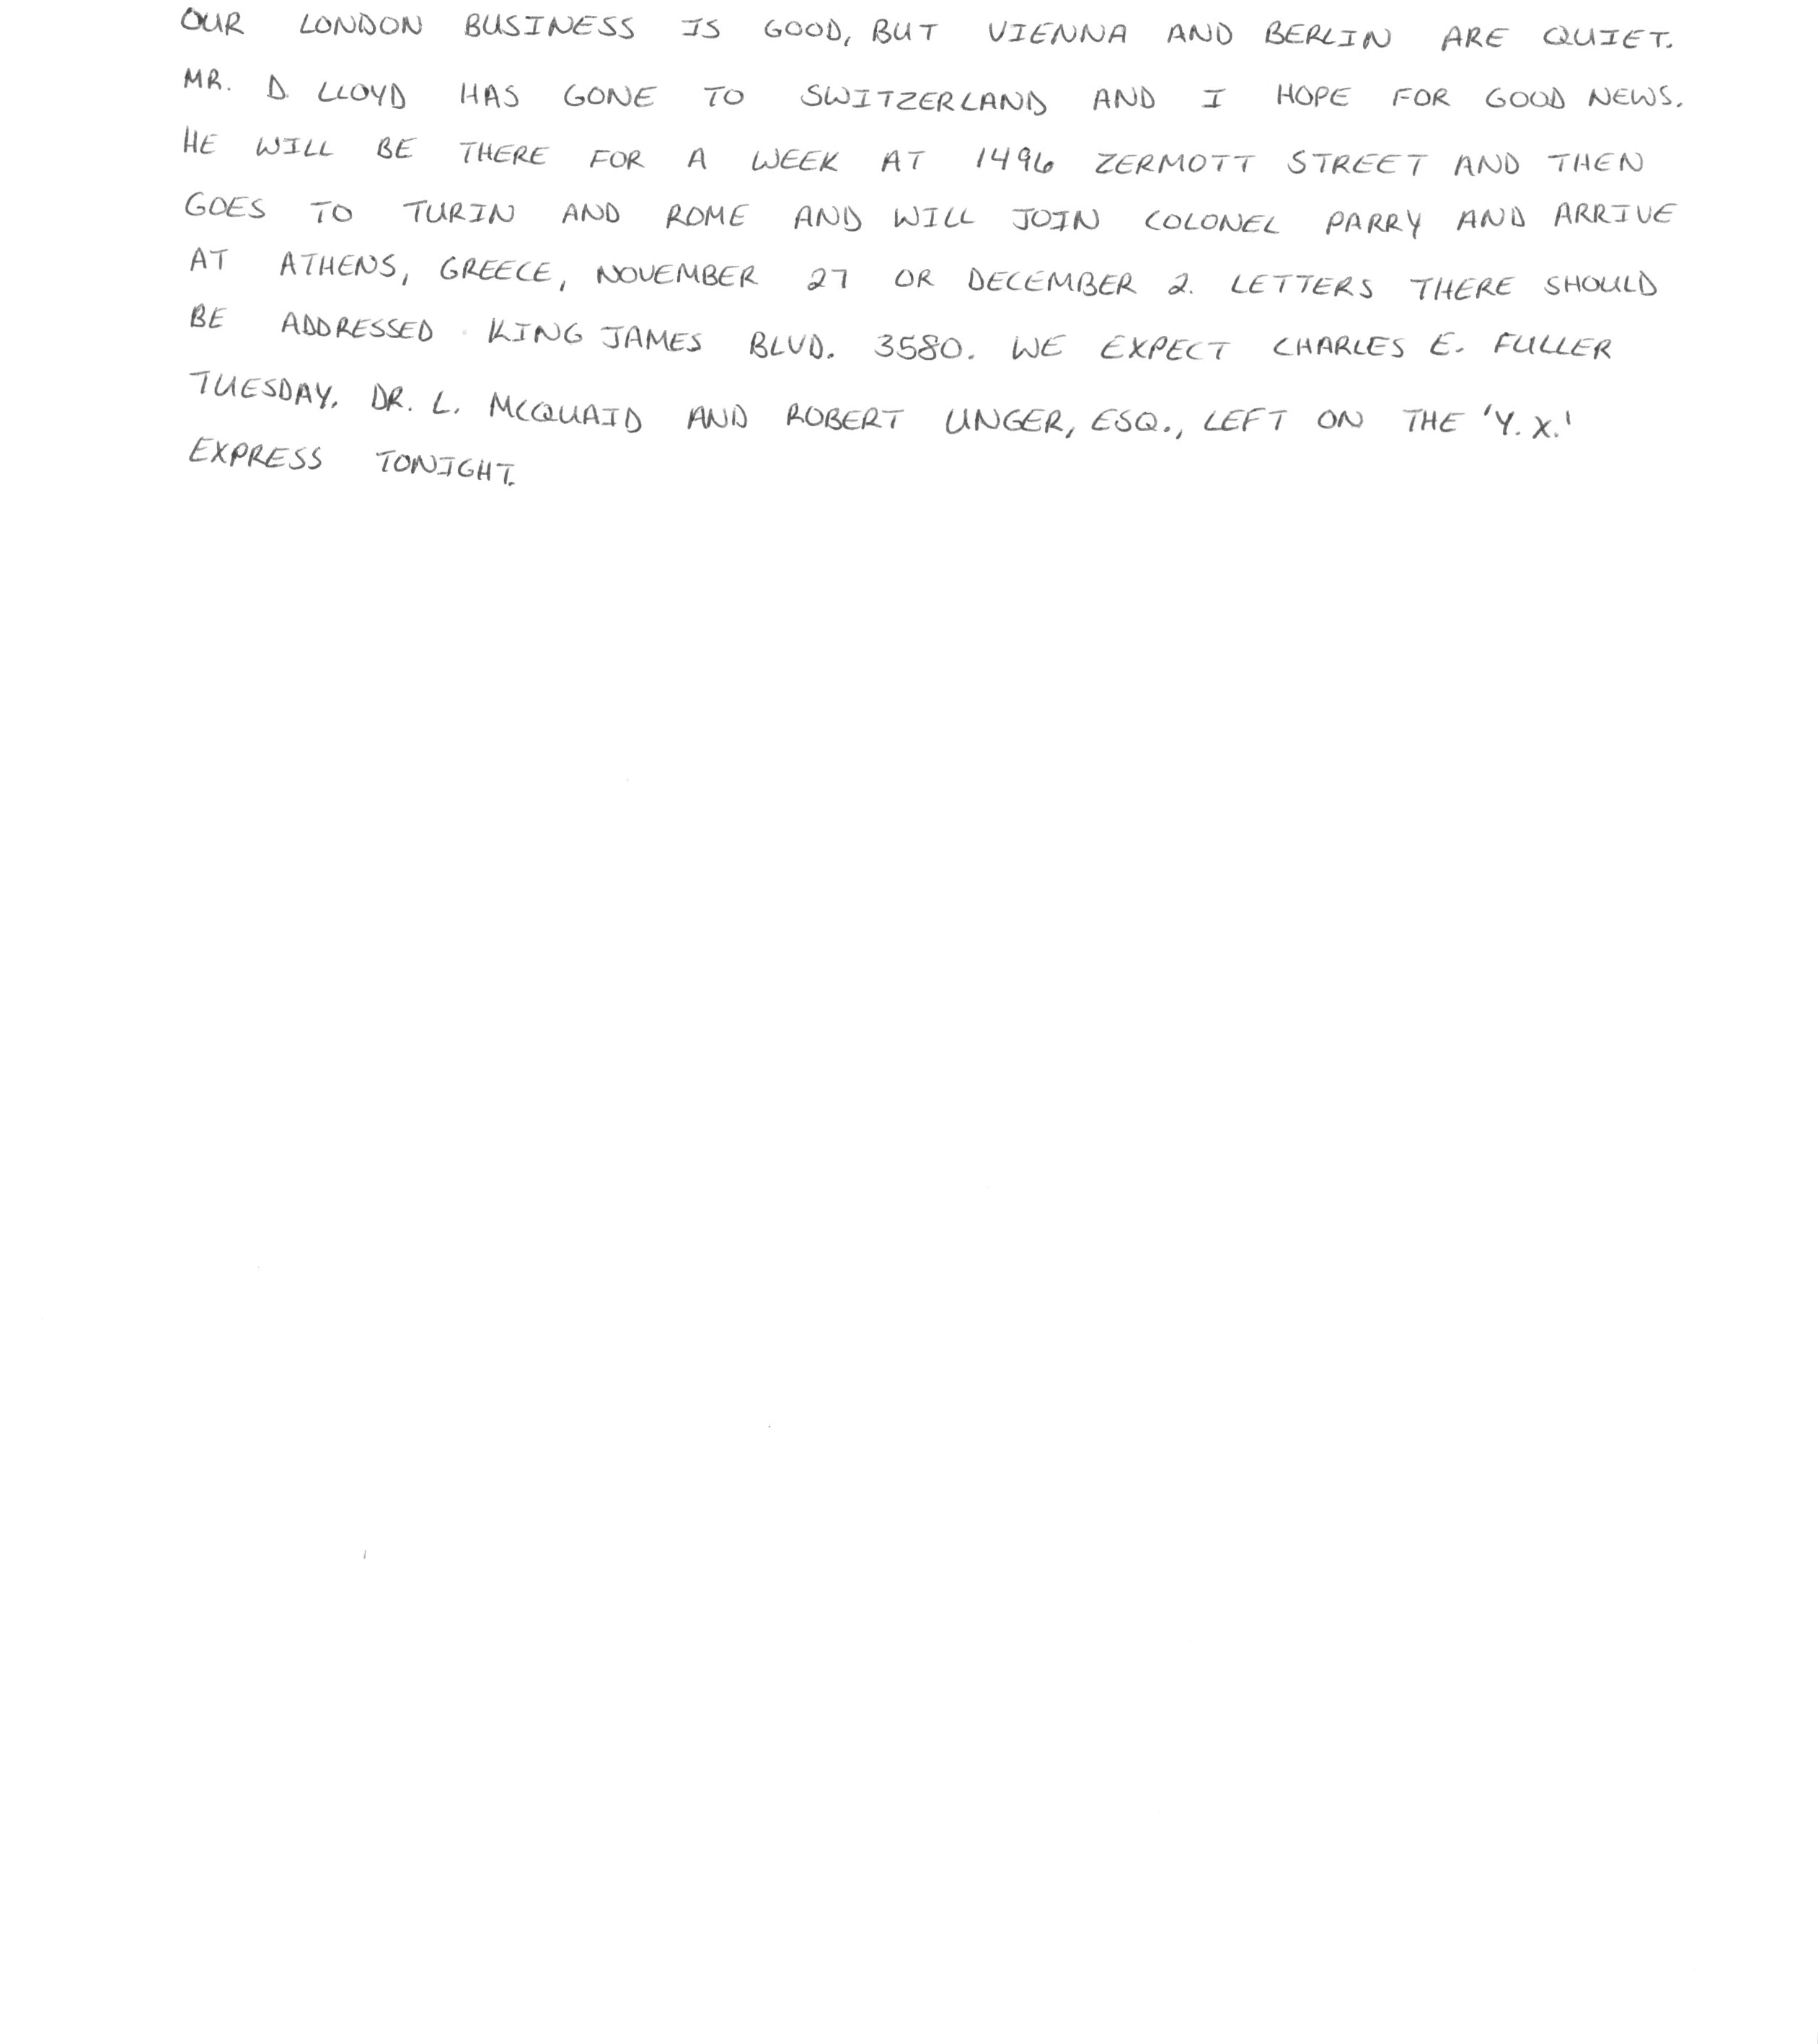 OUR LONDON BUSINESS IS GOOD, BUT VIENNA AND BERLIN ARE QUIET.
MR. D. LLOYD HAS GONE TO SWITZERLAND AND I HOPE FOR GOOD NEWS.
HE WILL BE THERE FOR A WEEK AT 1496 ZERMOTT STREET AND THEN
GOES TO TURIN AND ROME AND WILL JOIN COLONEL PARRY AND ARRIVE
AT ATHENS, GREECE, NOVEMBER 27 OR DECEMBER 2. LETTERS THERE SHOULD
BE ADDRESSED KING JAMES BLVD. 3580. WE EXPECT CHARLES E. FULLER
TUESDAY. DR. L. MCQUAID AND ROBERT UNGER, ESQ., LEFT ON THE 'Y.X.'
EXPRESS TONIGHT.